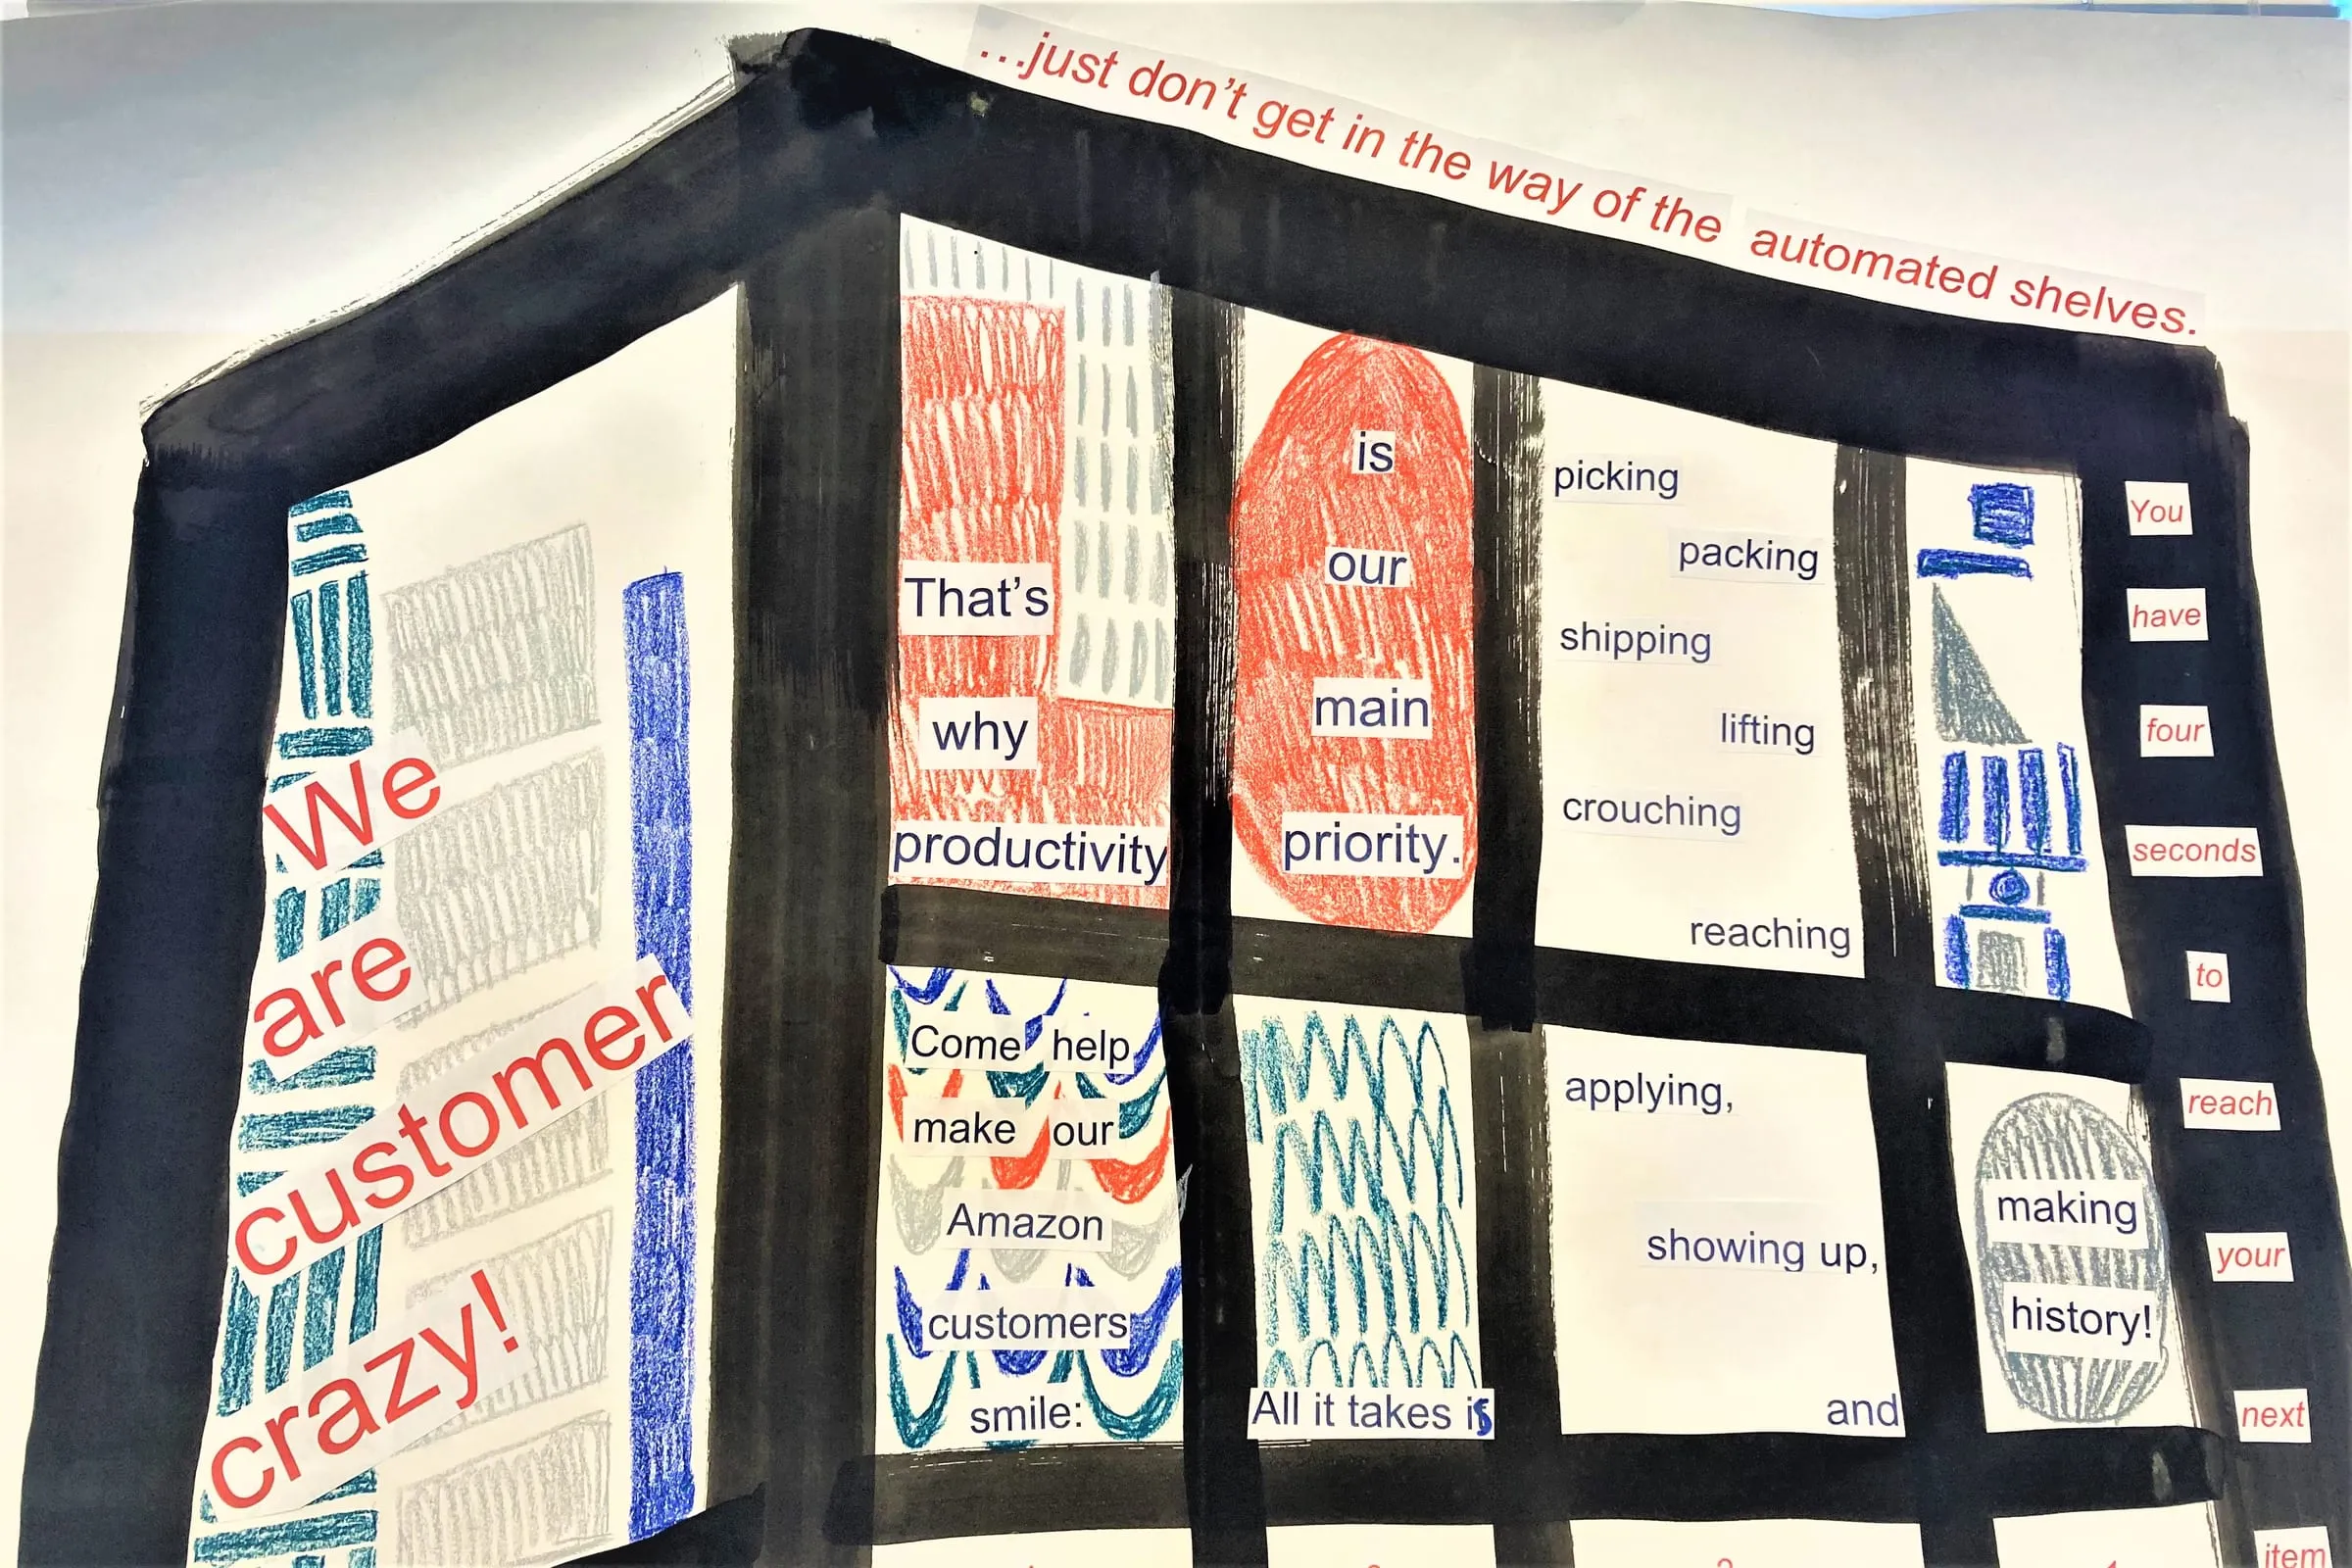 ...just don't get in the way of the automated shelves.
We
are
customer
crazy!
That's
why
productivity
is
our
main
priority.
picking
packing
shipping
lifting
crouching
reaching
Come help
make our
Amazon
customers
smile:
All it takes is
applying,
showing up,
and
making
history!
You
have
four
seconds
to
reach
your
next
item